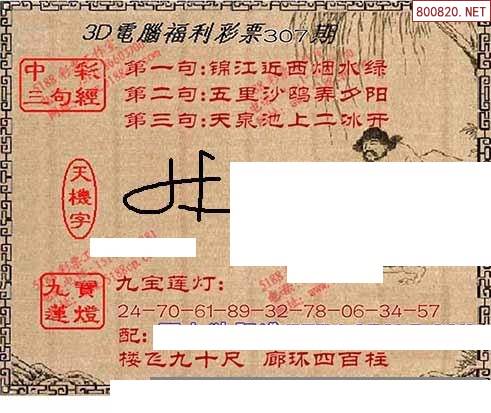 800820.NET
3D電腦福利彩票307期
中彩
三句經
第一句:锦江近西烟水绿
第二句:五里沙鸥弄夕阳
第三句:天泉池上二冰开
天機字
九寶
蓮燈
九宝莲灯:
24-70-61-89-32-78-06-34-57
配:
楼飞九十尺 廊环四百柱